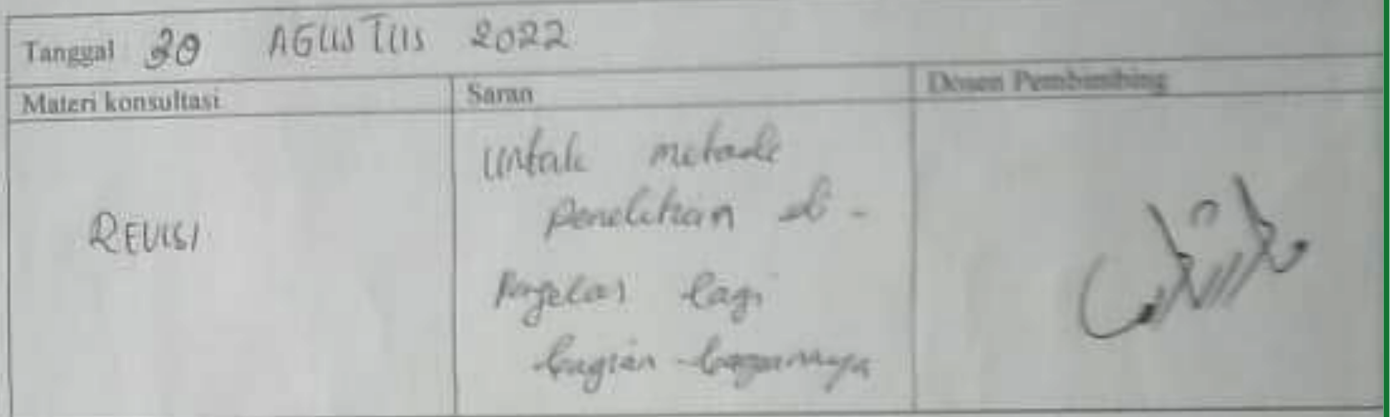 Tanggal 30 AGUSTUS 2022
Materi konsultasi
Saran
Dosen Pembimbing
REVISI
untuk metode
penelitian di -
perjelas lagi
bagian-bagannya